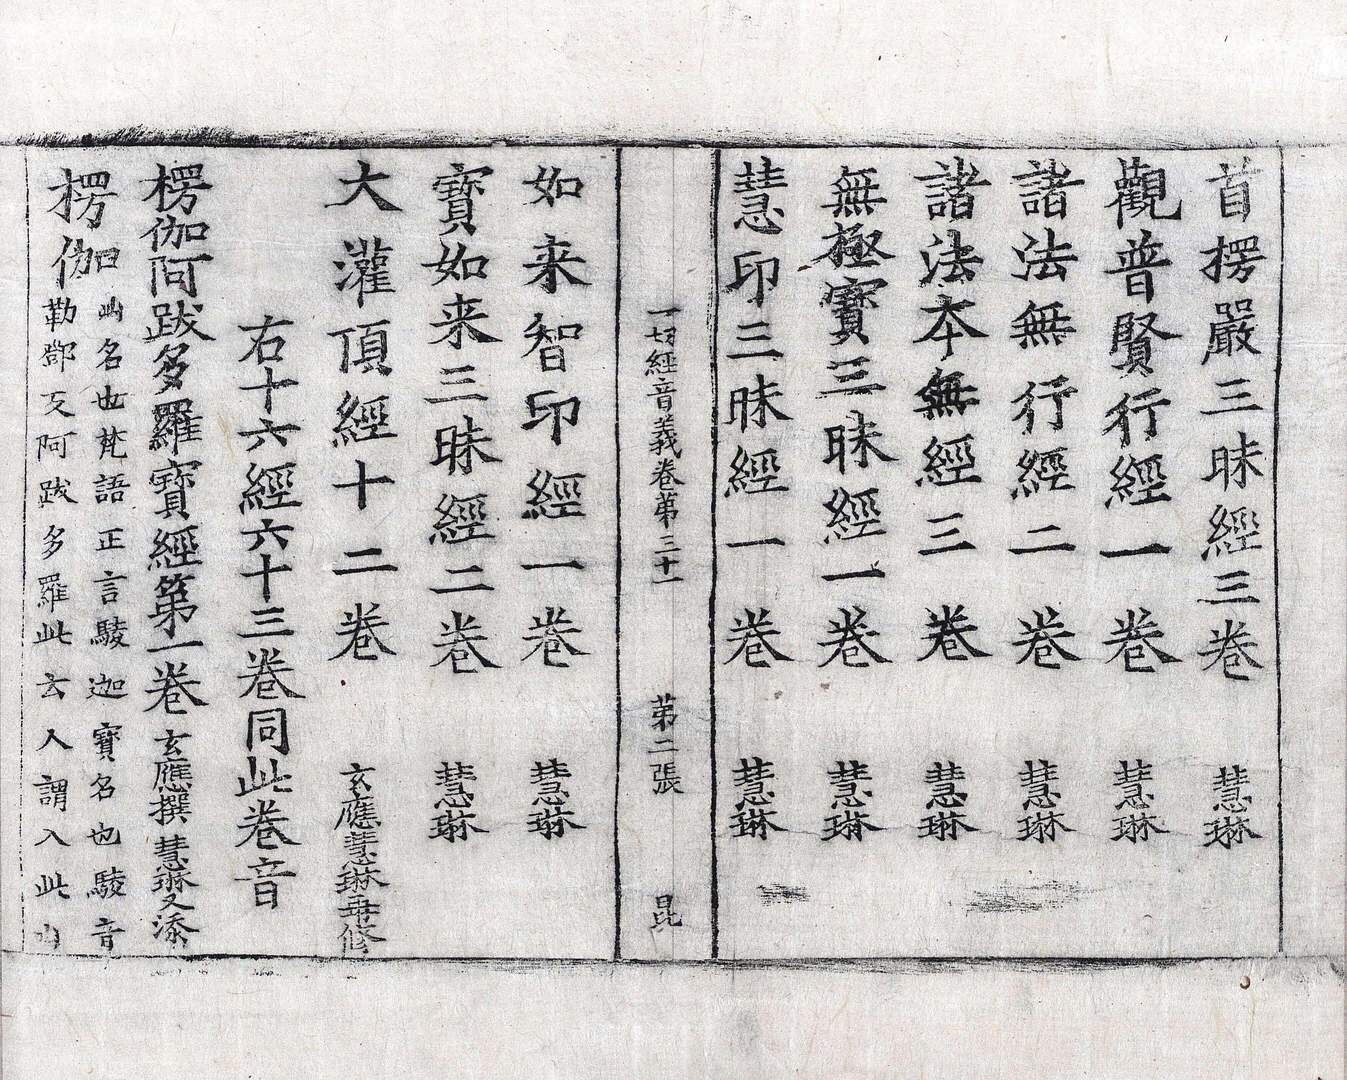 首楞嚴三昧經三卷 慧琳
觀普賢行經一卷 慧琳
諸法無行經二卷 慧琳
諸法夲無經三卷 慧琳
無極寶三昧經一卷 慧琳
慧印三昧經一卷 慧琳
一切經音義卷苐三十一 苐二張 昆
如来智印經一卷 慧琳
寶如来三昧經二卷 慧琳
大灌頂經十二卷 玄應慧琳再修
右十六經六十三卷同此卷音
楞伽阿跋多羅寶經第一卷 玄應撰慧琳又添
楞伽
山名也梵語正言駿迦寶名也駿音
勒鄧反阿跋多羅此云入謂入此山